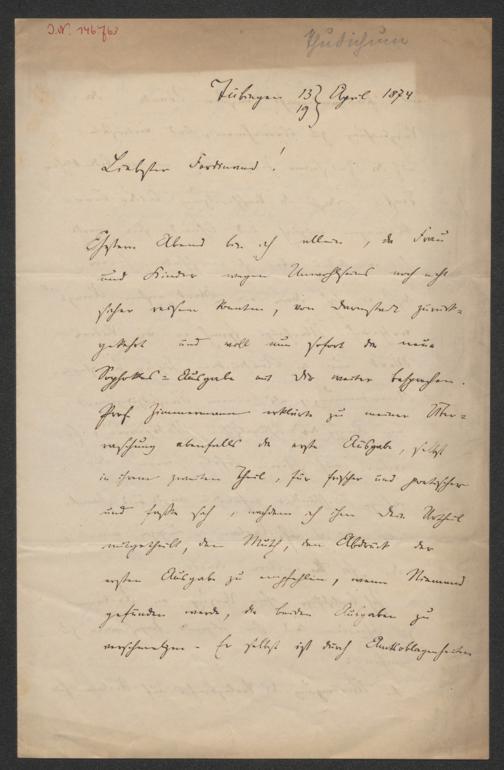 J.N. 146763
Thudichum
Tübingen 13 } April 1874
19
Liebster Ferdinand!
Gestern Abend bin ich allein, da Frau
und Kinder wegen Unwohlseins noch nicht
sicher reisen konnten, von Darmstadt zurück-
gekehrt und will nun sofort die neue
Sophokles-Ausgabe mit Dir weiter besprechen.
Prof. Zimmermann erklärte zu meiner Über-
raschung ebenfalls die erste Ausgabe, selbst
in ihrem zweiten Theil, für frischer und poetischer
und faßte sich, nachdem ich ihm Dein Urtheil
mitgetheilt, den Muth, den Abdruck der
ersten Ausgabe zu empfehlen, wenn Niemand
gefunden werde, die beiden Ausgaben zu
verschmelzen. Er selbst ist durch Amtsobliegenheiten